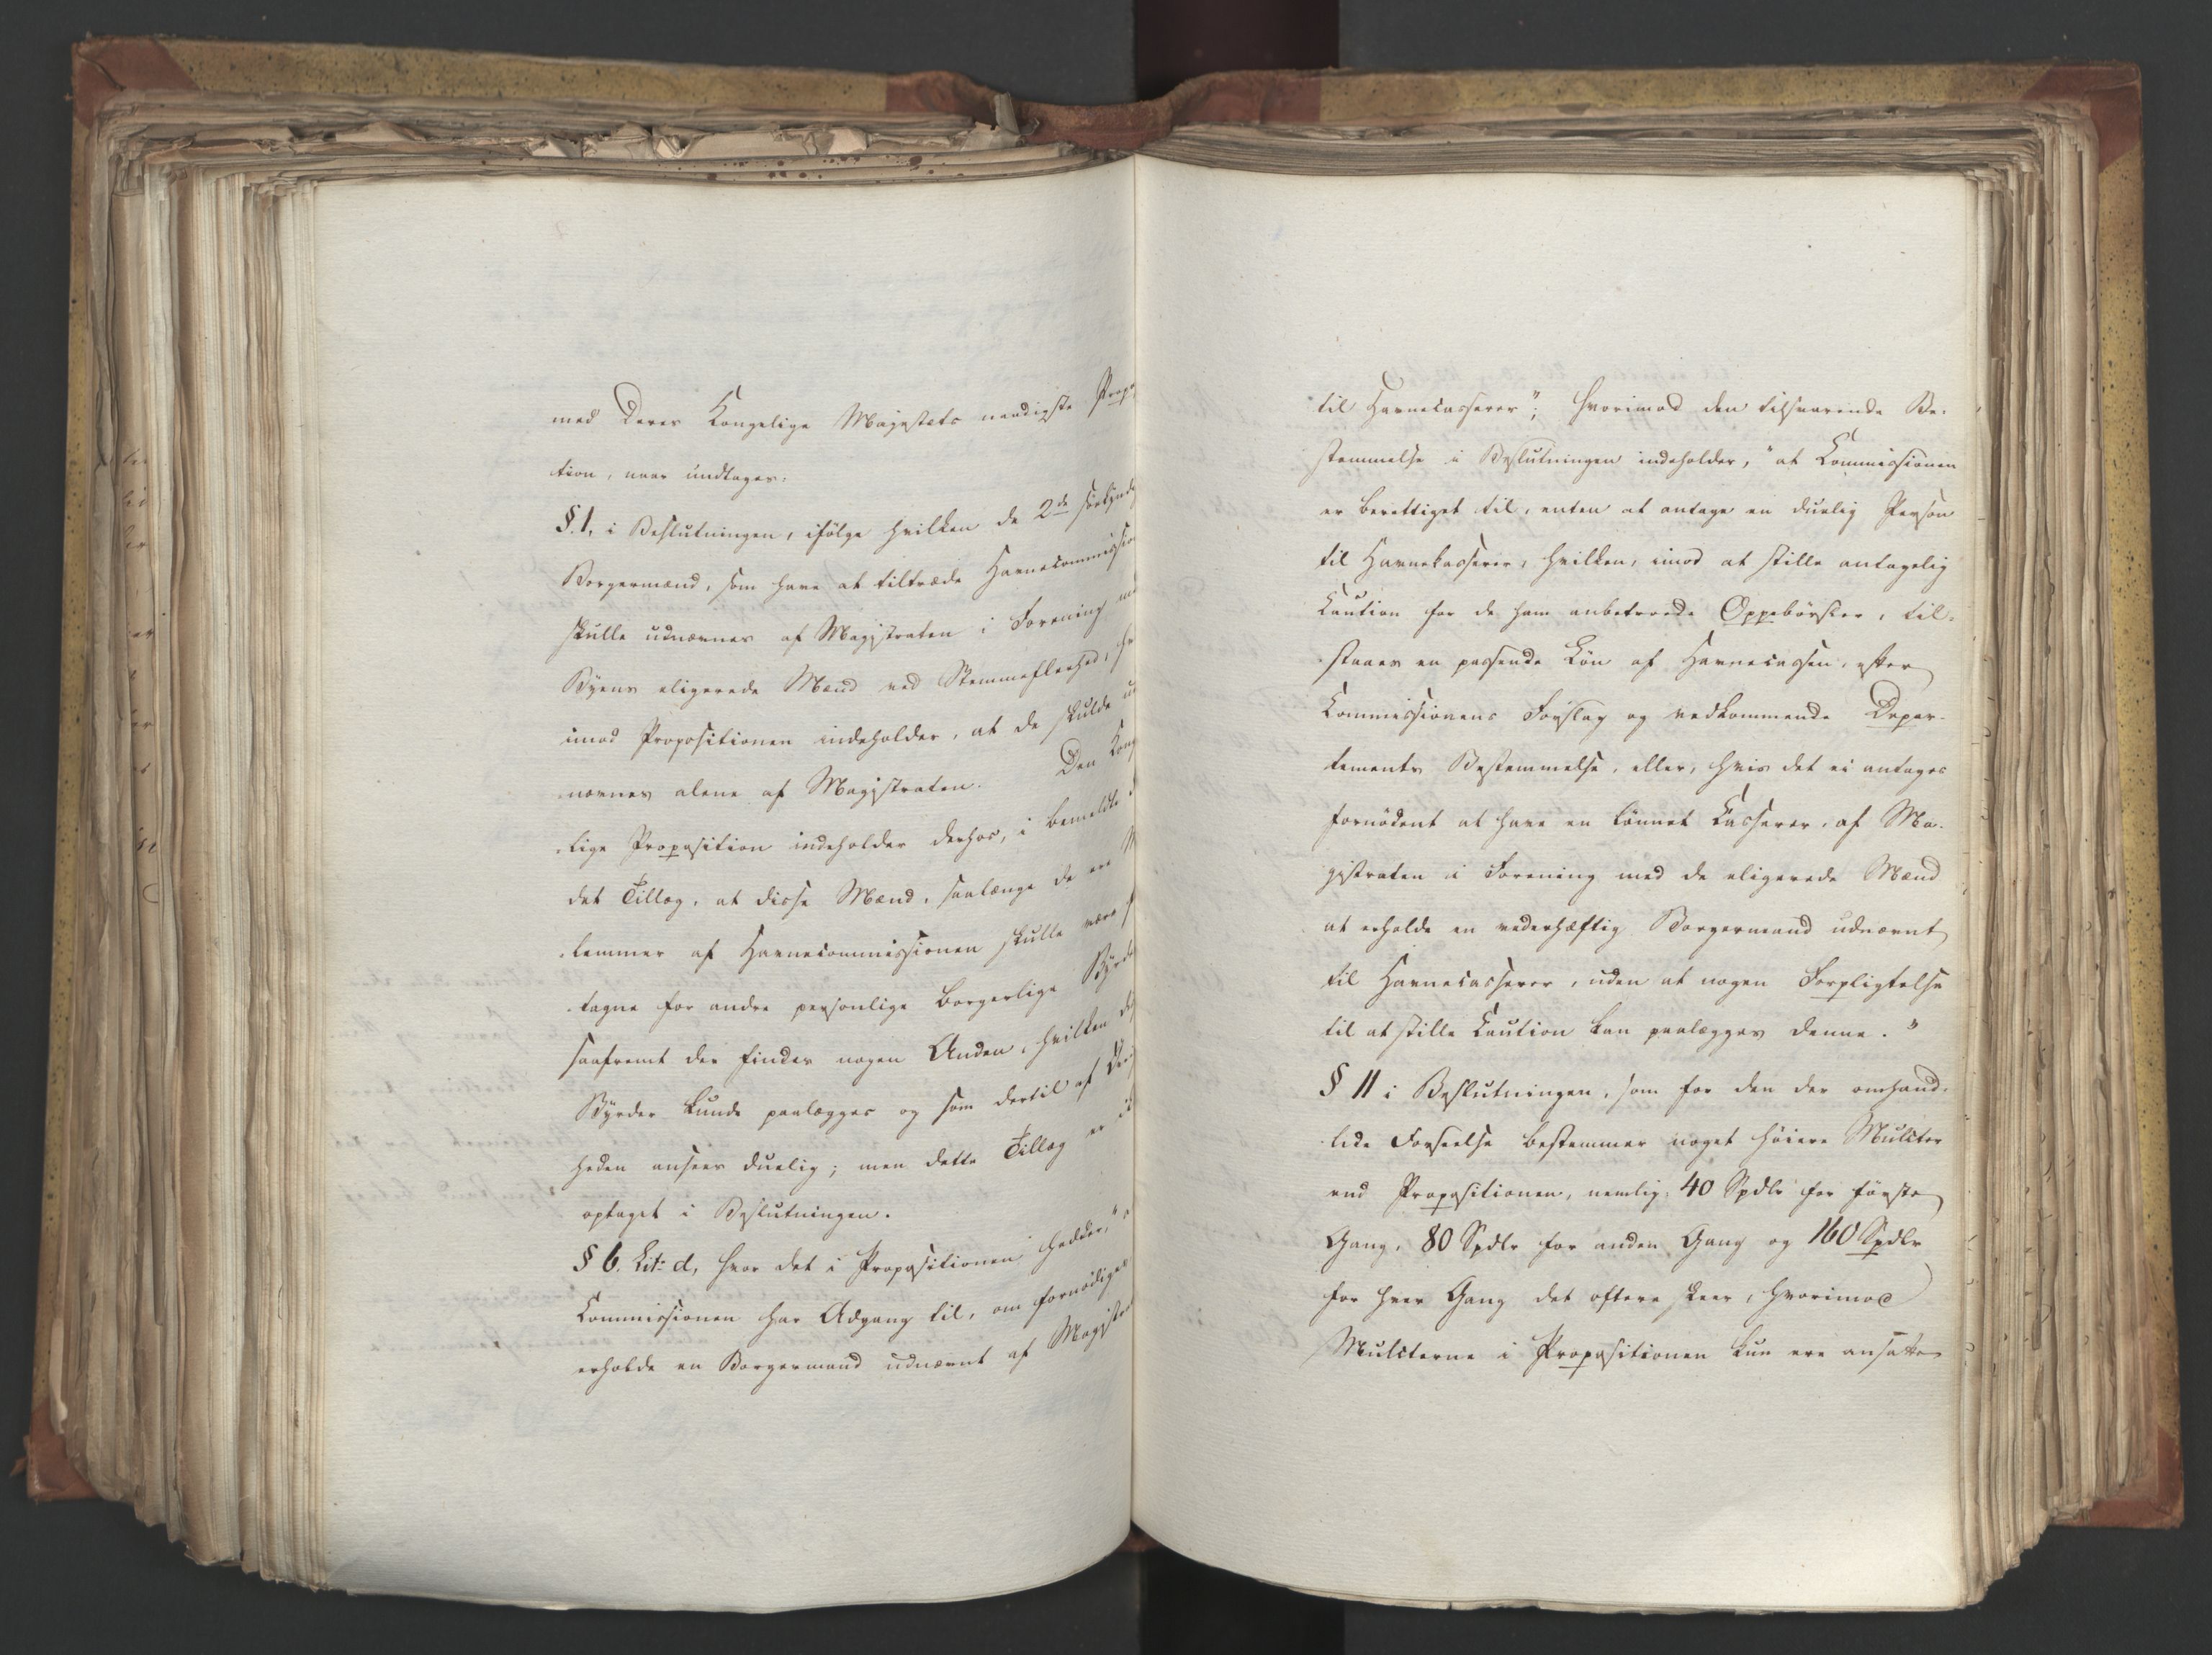 med Deres Kongelige Majestæts naadigste Propo
tion, naar undtages:
§.1, i Beslutningen, ifølge hvilken de 2de søekyndig
Borgermænd, som have at tiltræde Havnecommission
skulle udnævnes af Magistraten i Forening me
Byens eligerede Mænd ved Stemmefleerhed, hv
imod Propositionen indeholder, at de skulde ud
nævnes alene af Magistraten. Den Konge
lige Proposition indeholder derhos, i bemeldte
det Tillæg, at disse Mænd, saalænge de ere M
lemmer af Havnecommissionen skulle være f
tagne for andre personlige borgerlige Byrde
saafremt der findes nogen Anden, hvilken
Byrder kunde paalægges og som dertil af Øv
heden ansees duelig; men dette Tillæg er ik
optaget i Beslutningen.
§ 6. Lit: d, hvor det i Propositionen hedder, "
Commissionen har Adgang til, om fornødiges
erholde en Borgermand udnævnt af Magistra
til Havnecasserer"; hvorimod den tilsvarende Be-
stemmelse i Beslutningen indeholder, "at Commissionen
er berettiget til, enten at antage en duelig Person
til Havnekasserer, hvilken, imod at stille antagelig
Caution for de ham anbetroede Oppebörsler, til-
staaes en passende Lön af Havnecassen, efter
Commissionens Forslag og vedkommende Depar-
tements Bestemmelse, eller, hvis det ei antages
fornödent at have en lönnet Casserer, af Ma-
gistraten i Forening med de eligerede Mænd
at erholde en vederhæftig Borgermand udnævnt
til Havnecasserer, uden at nogen Forpligtelse
til at stille Caution kan paalægges denne."
§ 11 i Beslutningen, som for den der omhand-
lede Forseelse bestemmer noget höiere Mulcter
end Propositionen, nemlig: 40 Spdlr for förste
Gang, 80 Spdlr for anden Gang og 160 Spdlr
for hver Gang det oftere skeer, hvorimod
Mulcterne i Propositionen kun ere ansatte